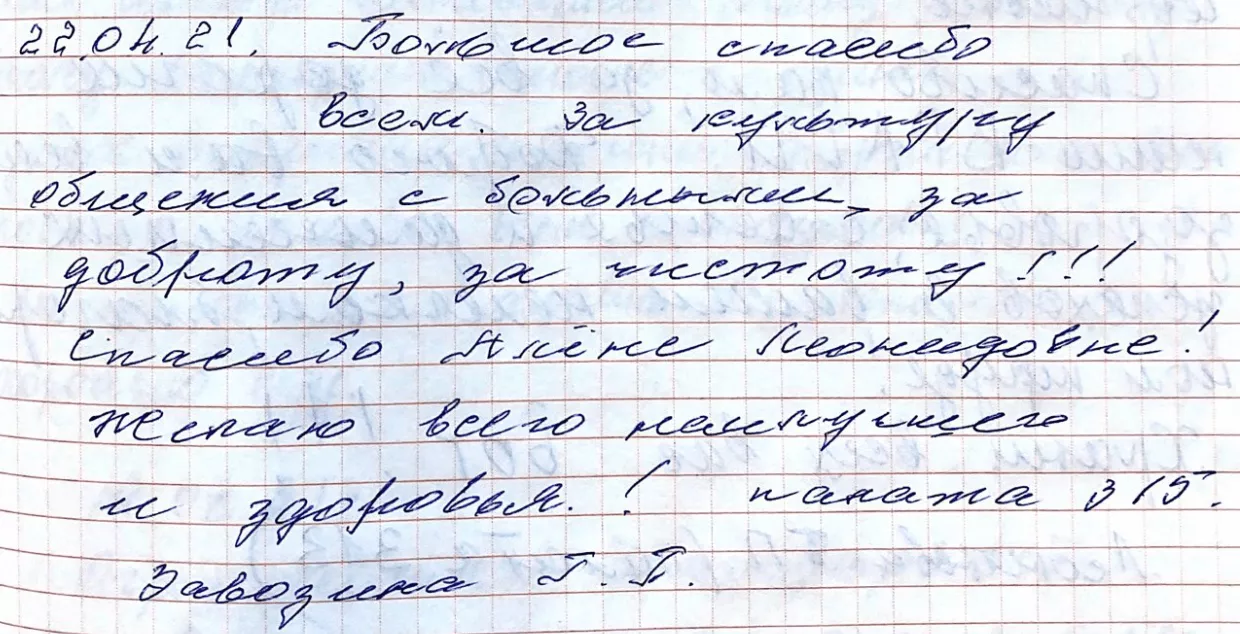 22.04.21. Большое спасибо
всем. За культуру
общения с больными, за
доброту, за чистоту!!!
Спасибо Алёне Леонидовне!
Желаю всего наилучшего
и здоровья.! палата 315.
Завозина Г. П.